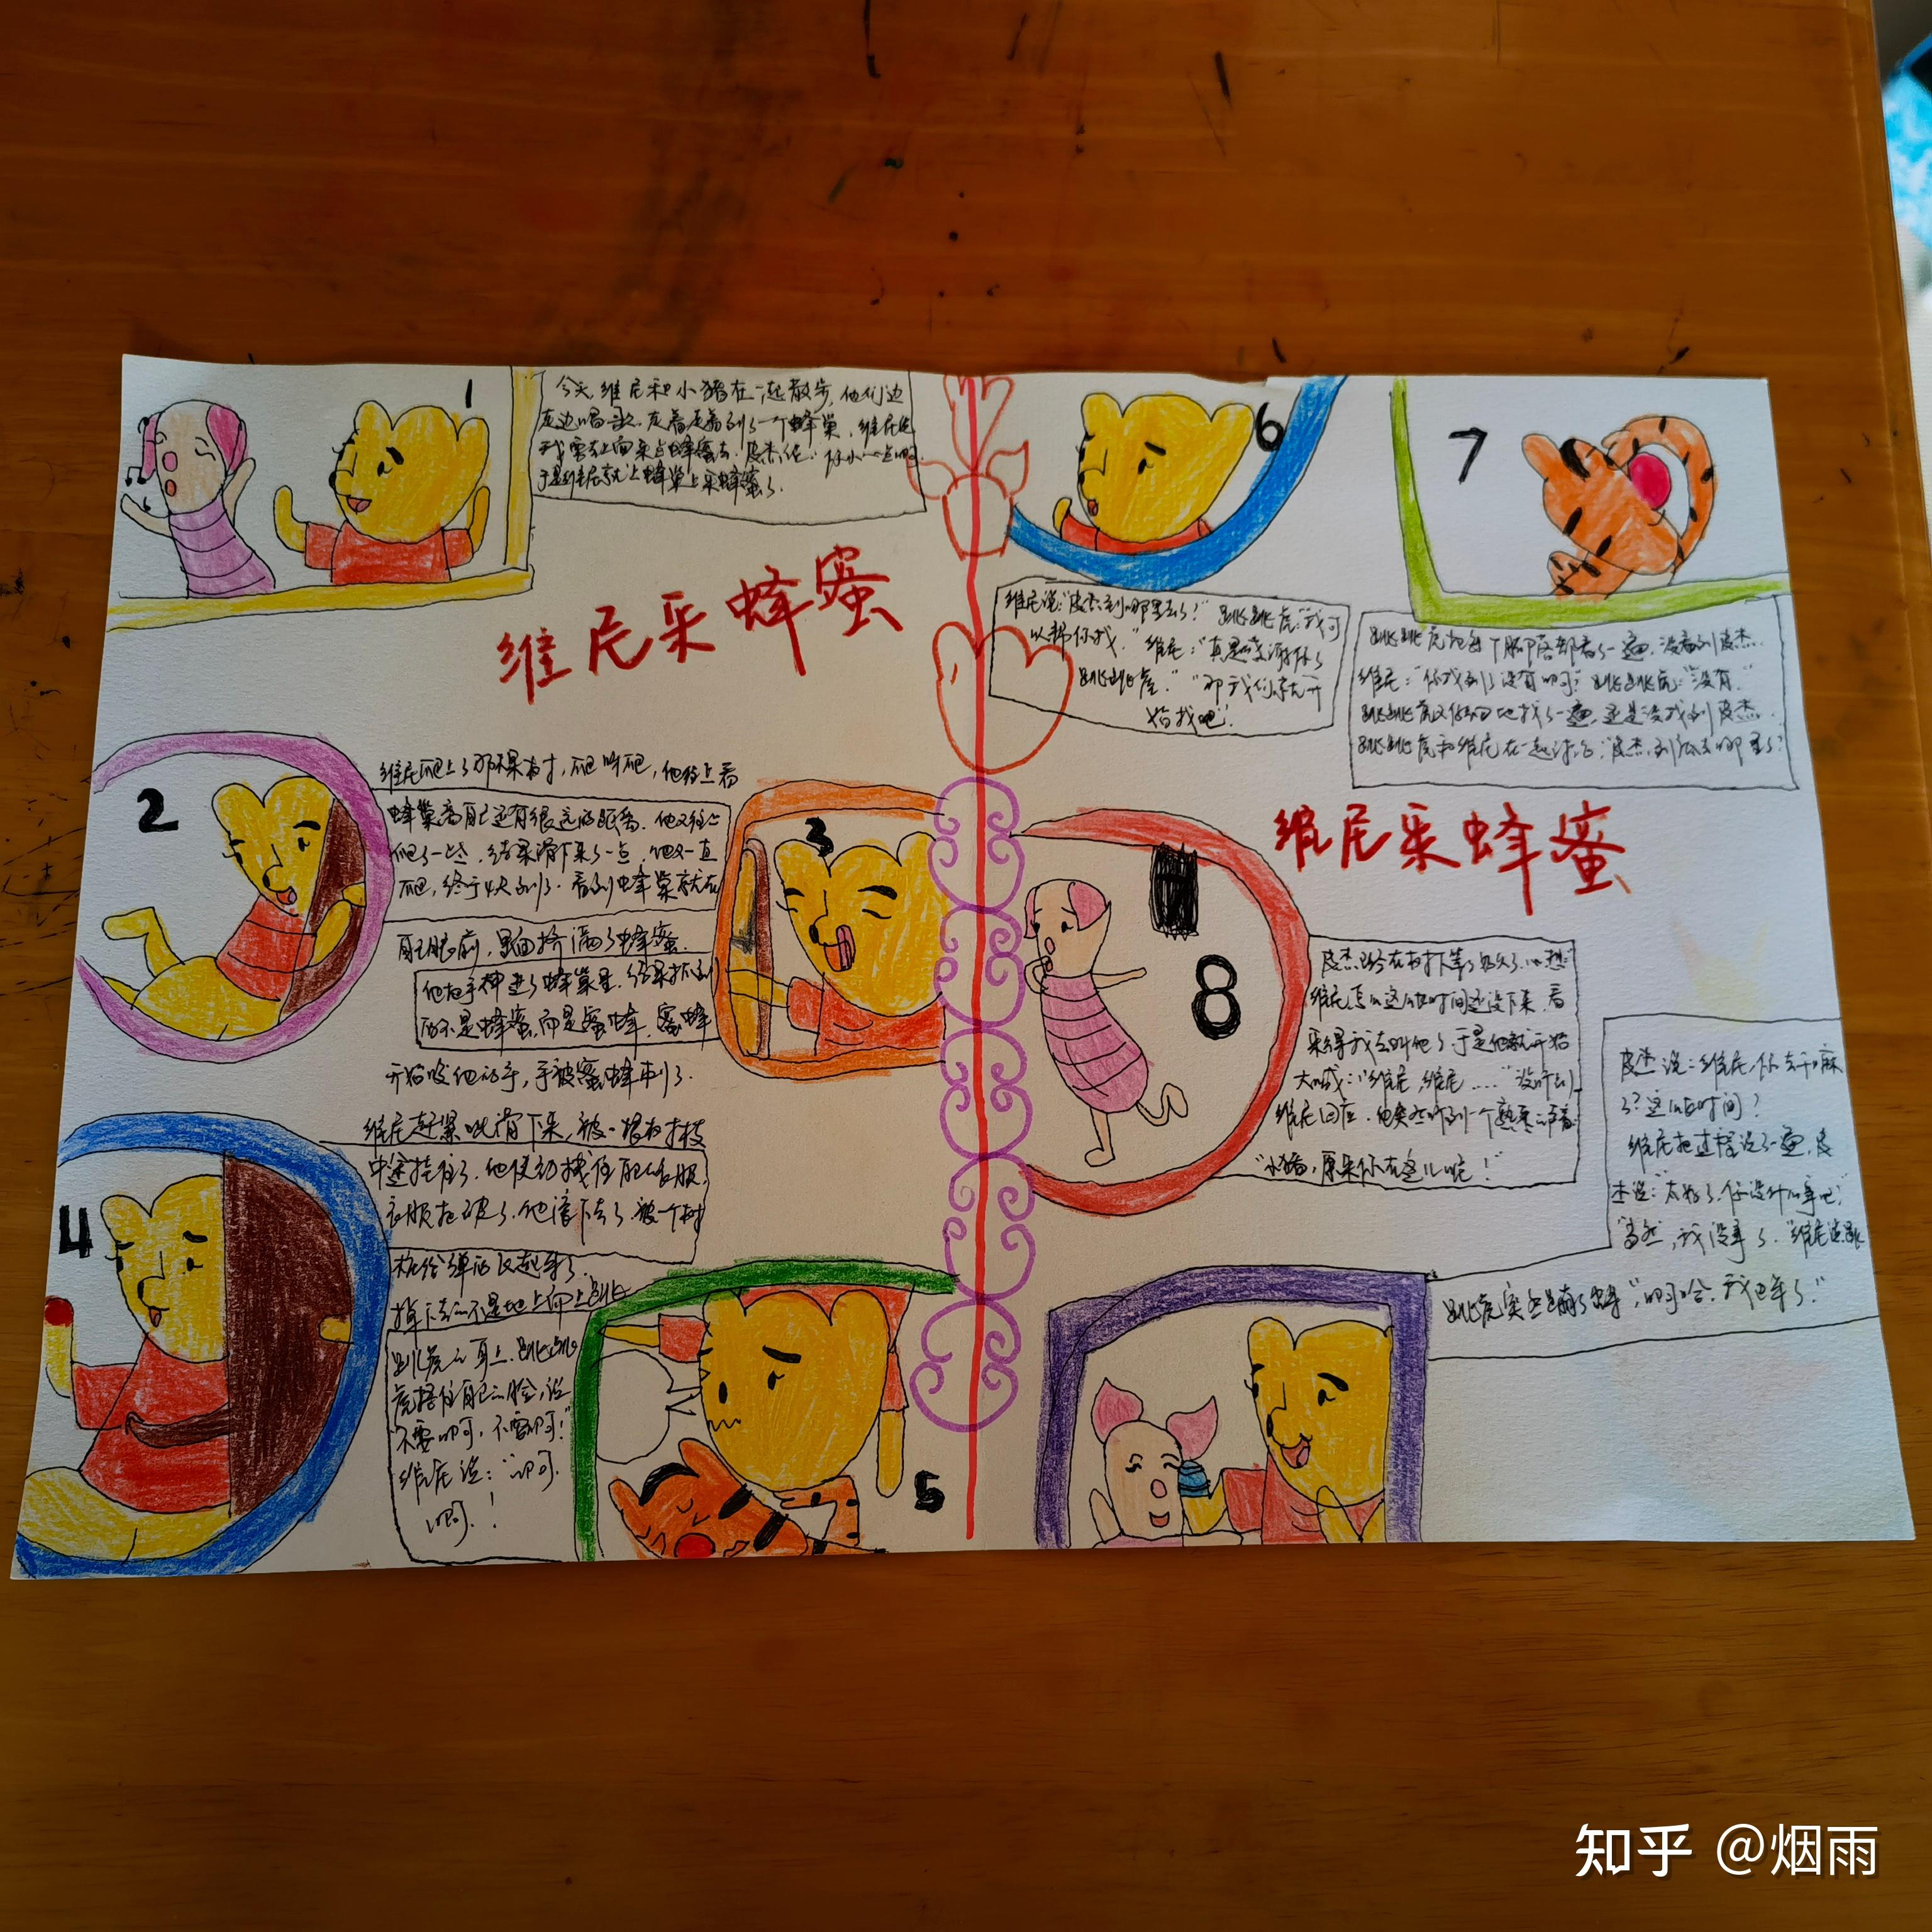 1
今天,维尼和小猪在一起散步,他们边
走边唱歌.走着走着看到了一个蜂巢,维尼说
我要去上面采点蜂蜜去.皮杰说:你小心点啊.
于是维尼就上蜂巢上采蜂蜜了.
维尼采蜂蜜
2
维尼爬上了那棵树,爬啊爬,他往上看
蜂巢离自己还有很远的距离.他又往上
爬了一些,结果滑下来了一点,他又一直
爬,终于快到了.看到蜂巢就在
自己眼前,里面挤满了蜂蜜.
他把手伸进了蜂巢里.结果抓到
的不是蜂蜜,而是蜜蜂.蜜蜂
开始咬他的手,手被蜜蜂刺了.
3
4
维尼赶紧滑下来,被一根树枝
中途挂住了.他使劲拽住自己的衣服,
衣服扯破了.他滚下去了.被一个树
桩给弹的又起来了
掉下去的不是地上而是跳
跳虎的身上.跳跳
虎捂住自己的脸,说
"不要啊,不要啊!"
维尼说:"啊
啊!
5
6
维尼说:"皮杰到哪里去了?"跳跳虎:"我可
以帮你找."维尼:"真是感谢你了
跳跳虎.""那我们就开
始找吧!
7
跳跳虎把每个脚印都看了一遍,没看到皮杰.
维尼:"你找到了没有啊?"跳跳虎:"没有."
跳跳虎又仔细地找了一遍,还是没找到皮杰.
跳跳虎和维尼在一起讨论:"皮杰到底去哪里了?
维尼采蜂蜜
8
皮杰已经在树下等了好久了.心想:
维尼怎么这么长时间还没下来,看
来得我去叫他了.于是他就开始
大喊:"维尼,维尼……"没听到
维尼回应.他突然听到一个熟悉的声音:
"小猪,原来你在这儿呢!"
皮杰说:维尼,你去干嘛
了?这么长时间?
维尼把过程说了一遍,皮
杰说:"太好了,你没什么事吧?"
"当然,我没事了."维尼说.跳
跳虎突然蹦了出来","啊哈,我也来了."
知乎 @烟雨